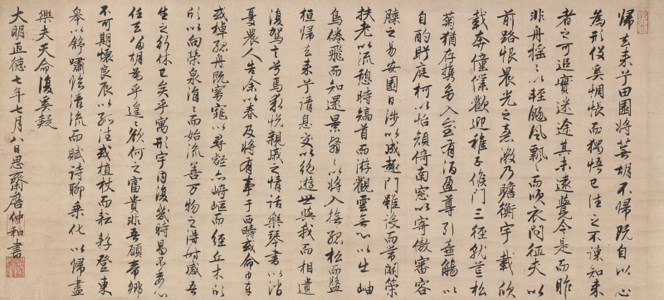 歸去來兮田園將蕪胡不歸既自以心
為形役奚惆悵而獨悟已往之不諫知來
者之可追實迷途其未遠覺今是而昨
非舟搖搖以輕颺風飄飄而吹衣問征夫以
前路恨晨光之熹微乃瞻衡宇載欣
載奔僮僕歡迎稚子候門三徑就荒松
菊猶存攜幼入室有酒盈尊引壺觴以
自酌眄庭柯以怡顏倚南窗以寄傲審容
膝之易安園日涉以成趣門雖設而常關策
扶老以流憩時矯首而游觀雲無心以出岫
鳥倦飛而知還景翳翳以將入撫孤松而盤
桓歸去來兮請息交以絕遊世與我而相遺
復駕言兮焉求悅親戚之情話樂琴書以消
憂農人告余以春及將有事于西疇或命巾車
或棹孤舟既窈窕以尋壑亦崎嶇而經丘木欣
欣以向榮泉涓涓而始流善萬物之得時感吾
生之行休已矣乎寓形宇內復幾時曷不委心
任去留胡為乎遑遑欲何之富貴非吾願帝鄉
不可期懷良辰以孤往或植杖而耘耔登東
皋以舒嘯臨清流而賦詩聊乘化以歸盡
樂夫天命復奚疑
大明正德七年七月八日思齋唐仲和書